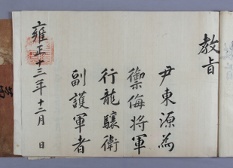 教旨
尹東源為
禦侮將軍
行龍驤衛
副護軍者
雍正十三年十二月 日